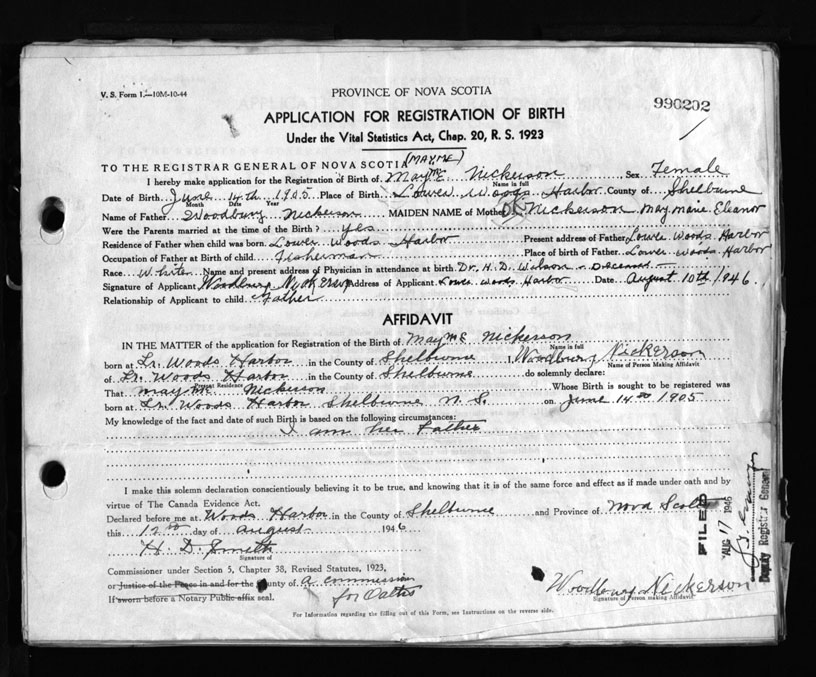 V. S. Form 1.—10M-10-44
PROVINCE OF NOVA SCOTIA
990202
APPLICATION FOR REGISTRATION OF BIRTH
Under the Vital Statistics Act, Chap. 20, R. S. 1923
(MAYME)
TO THE REGISTRAR GENERAL OF NOVA SCOTIA
I hereby make application for the Registration of Birth of Mayme Nickerson Sex Female
Name in full
Date of Birth June 14th 1905 Place of Birth Lower Woods Harbor County of Shelburne
Month Date Year
Name of Father Woodbury Nickerson MAIDEN NAME of Mother Nickerson May Marie Eleanor
Were the Parents married at the time of the Birth? Yes
Residence of Father when child was born. Lower Woods Harbor Present address of Father Lowe Woods Harbor
Occupation of Father at Birth of child. Fisherman Place of birth of Father. Lower Woods Harbor
Race White Name and present address of Physician in attendance at birth. Dr. H. D. Wilson Deceased
Signature of Applicant Woodbury Nickerson Address of Applicant. Lower Woods Harbor Date August 10th 1946
Relationship of Applicant to child. Father
AFFIDAVIT
IN THE MATTER of the application for Registration of the Birth of Mayme Nickerson
Name in full
born at Lr. Woods Harbor in the County of Shelburne I, Woodbury Nickerson
Name of Person Making Affidavit
of Lr. Woods Harbor in the County of Shelburne do solemnly declare:
Present Residence
That Mayme Nickerson Whose Birth is sought to be registered was
born at Lr. Woods Harbor Shelburne N. S. on June 14th 1905
My knowledge of the fact and date of such Birth is based on the following circumstances:
I am her Father
I make this solemn declaration conscientiously believing it to be true, and knowing that it is of the same force and effect as if made under oath and by
virtue of The Canada Evidence Act.
Declared before me at Woods Harbor in the County of Shelburne and Province of Nova Scotia
this 12th day of August 1946
H. D. Smith
Signature of
Commissioner under Section 5, Chapter 38, Revised Statutes, 1923,
or Justice of the Peace in and for the County of a commission
If sworn before a Notary Public affix seal. for Oaths
Woodbury Nickerson
Signature of Person making Affidavit
For Information regarding the filling out of this Form, see Instructions on the reverse side.
FILED
AUG 17 1946
Deputy Registrar General